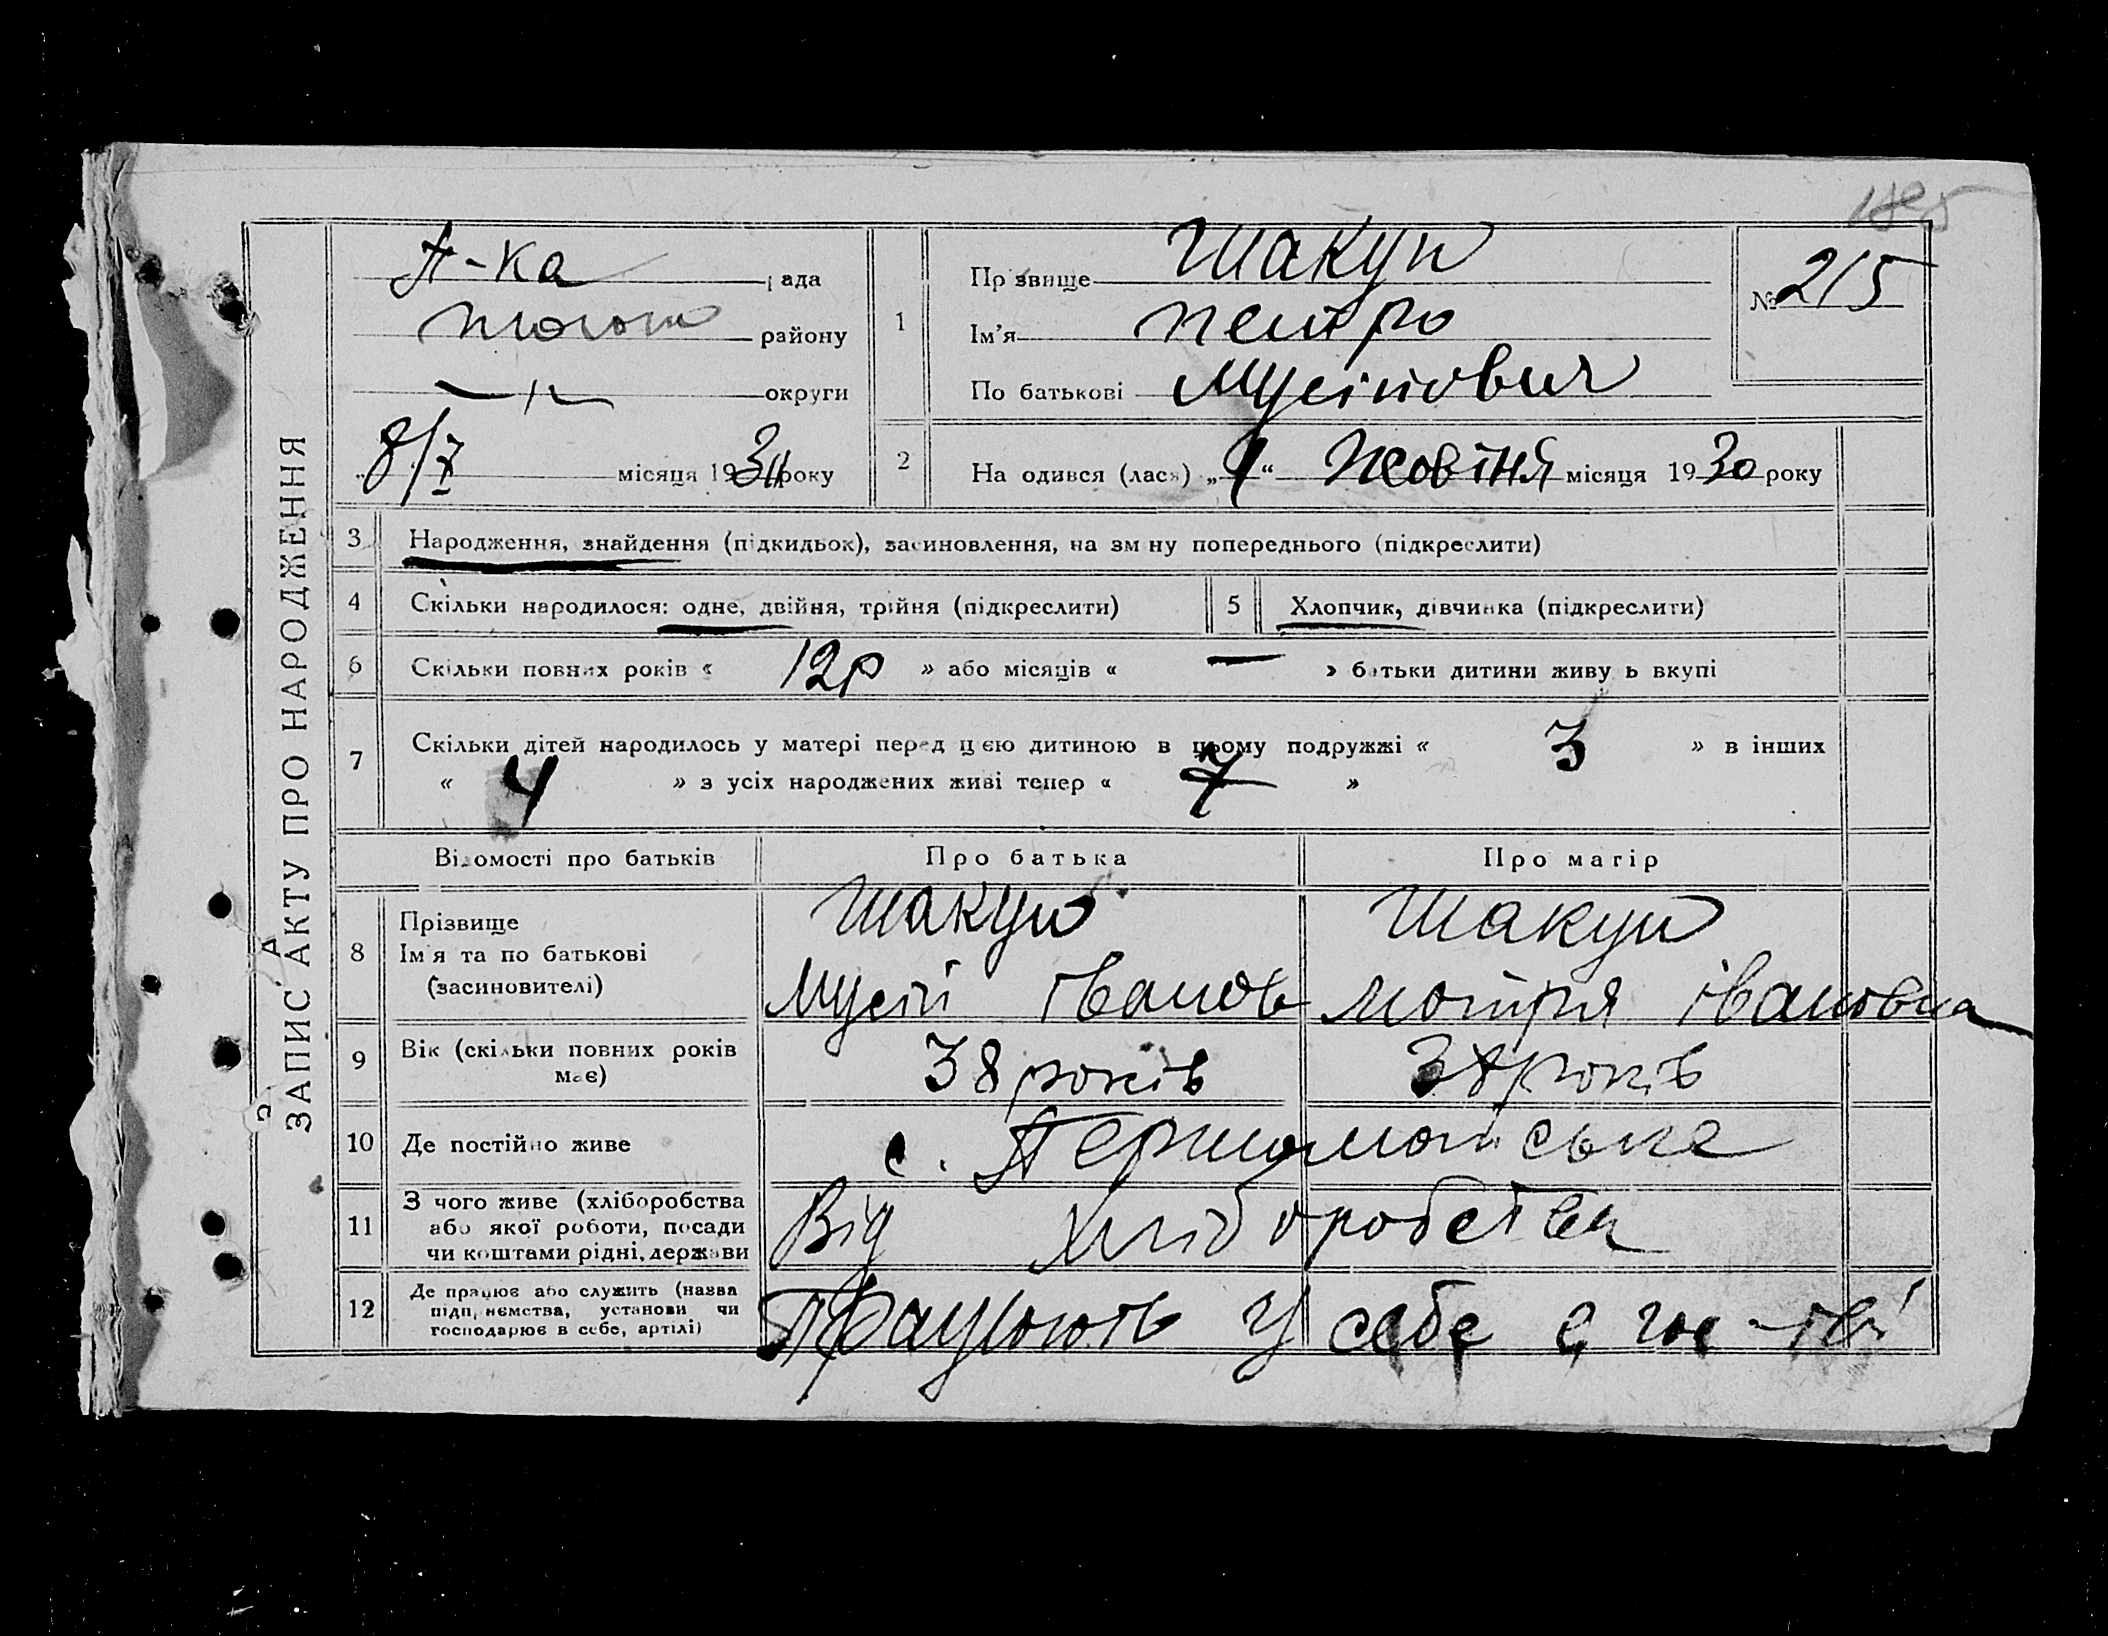 185
ЗАПИС АКТУ ПРО НАРОДЖЕННЯ
П-ка рада
району
—"— округи
8/X місяця 1931 року
1
Прізвище Шакун
Ім'я Петро
По батькові Мусійович
№ 215
2
На одився (лася) „ “ Жовтня місяця 1930 року
3 Народження, знайдення (підкидьок), засиновлення, на зміну попереднього (підкреслити)
4 Скільки народилося: одне, двійня, трійня (підкреслити)
5 Хлопчик, дівчинка (підкреслити)
6 Скільки повних років « 12р » або місяців « — » батьки дитини живуть вкупі
7 Скільки дітей народилось у матері перед цією дитиною в цьому подружжі « 3 » в інших
« 4 » з усіх народжених живі тепер « 7 »
Відомості про батьків Про батька Про матір
8 Прізвище
Ім'я та по батькові
(засиновителі)
Шакун
Мусій Іванов
Шакун
Мотря Івановна
9 Вік (скільки повних років
має)
38 років
38 років
10 Де постійно живе с. Першомайське
11 З чого живе (хліборобства
або якої роботи, посади
чи коштами рідні, держави
Від хліборобства
12 Де працює або служить (назва
підприємства, установи чи
господарює в себе, артілі)
Працюють у себе в гос-тві